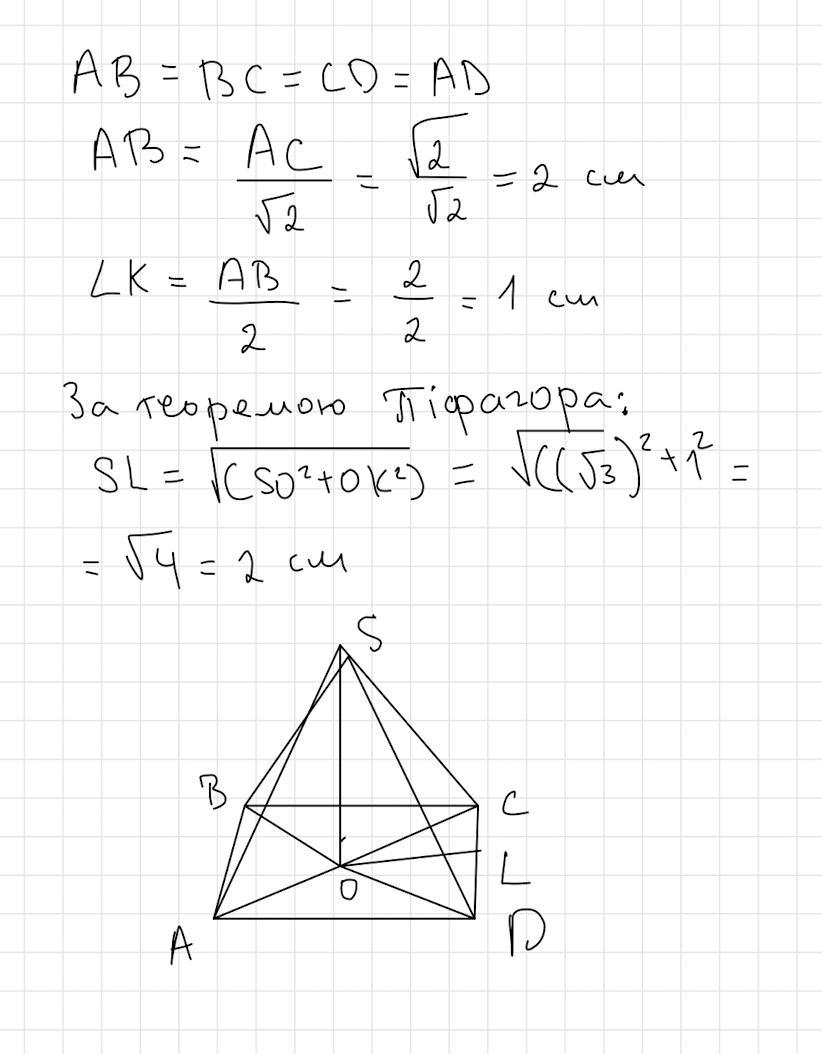 AB = BC = CD = AD
AB = AC/√2 = √2/√2 = 2 см
LK = AB/2 = 2/2 = 1 см
За теоремою Піфагора:
SL = √(SO²+OK²) = √((√3)²+1² =
= √4 = 2 см
S
B
C
L
O
A
D